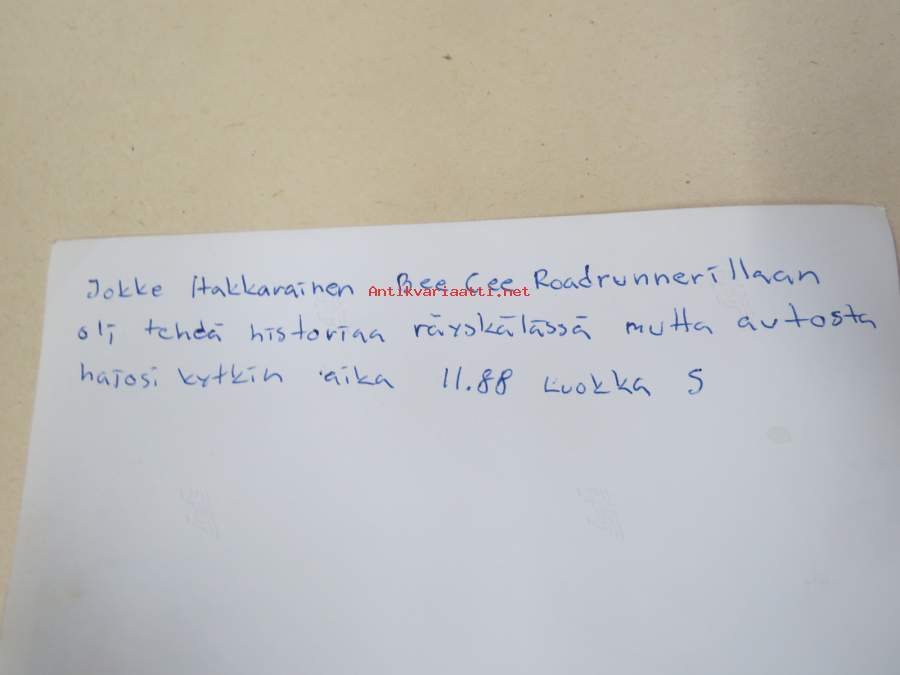 Jokke Hakkarainen Bee Gee Roadrunnerillaan
Antikvariaatti.net
oli tehdä historiaa räyskälässä mutta autosta
hajosi kytkin aika 11.88 Luokka S